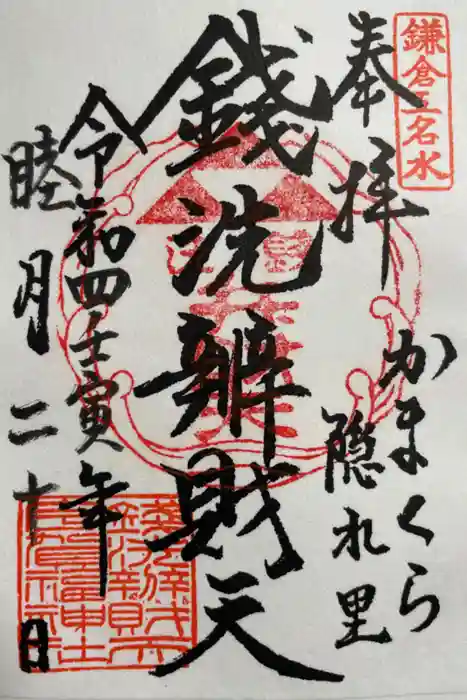 鎌倉五名水
奉拝
かまくら
隠れ里
銭洗辨財天
令和四壬寅年
睦月二十日